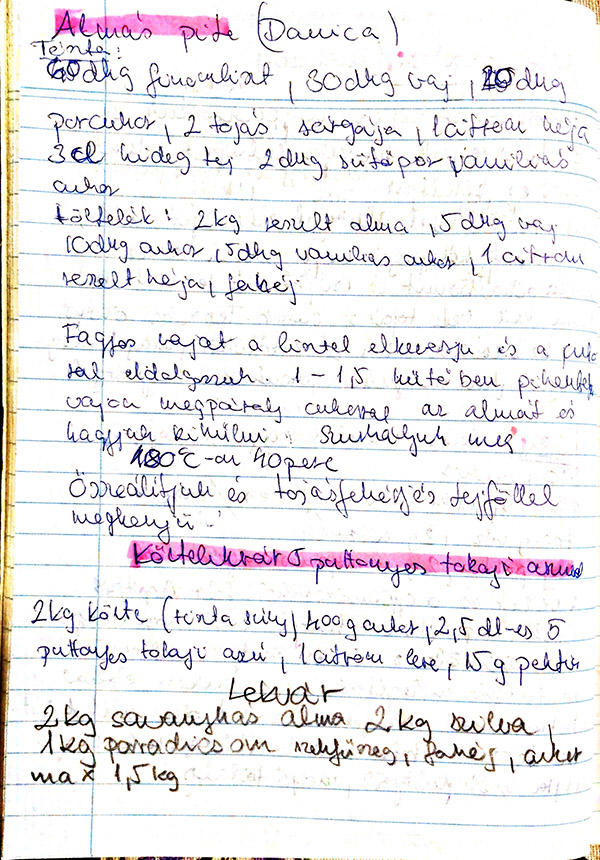 Almás pite (Danica)
Tészta:
60dkg finomliszt, 30dkg vaj, 20dkg
porcukor, 2 tojás sárgája, 1 citrom héja
3cl hideg tej 2dkg sütőpor vaniliás
cukor
töltelék: 2kg reszelt alma, 5dkg vaj
10dkg cukor, 5dkg vanilias cukor, 1 citrom
reszelt héja, fahéj
Fagyos vajat a liszttel elkeverjü és a
eldolgozzuk. 1-1,5 hűtőben
vajon megpárolj cukorral az almát és
hagyjuk kihülni. Szurkáljuk meg
180°C-on 40perc
Összeálitjuk és tojásfehérjés tejföllel
megkenjü
Körtelekvár 5 puttonyos tokaji
2kg körte (tiszta súly) 400g cukor, 2,5 dl-es 5
puttonyos tokaji aszú, 1 citrom leve, 15g pektin
Lekvár
2kg savanykás alma 2kg szilva,
1kg paradicsom szekfüszeg, fahéj, cukor
max 1,5kg